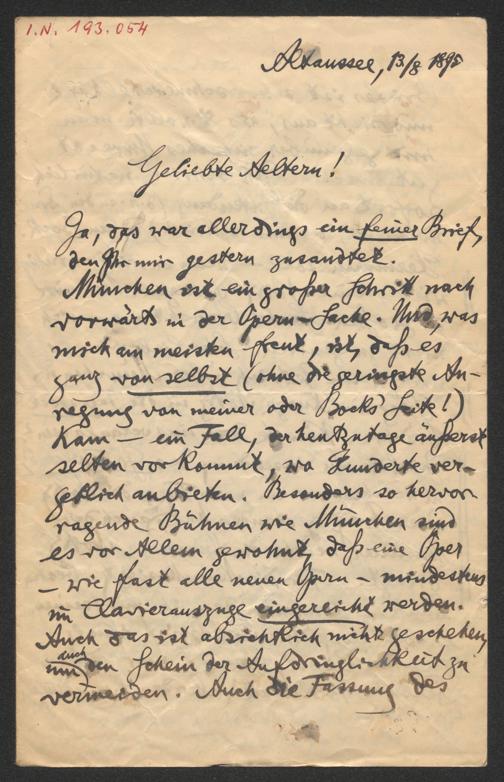 I.N. 193.054
Altaussee, 13/8 1895
Geliebte Aeltern!
Ja, das war allerdings ein feiner Brief,
den Ihr mir gestern zusandtet.
München ist ein großer Schritt nach
vorwärts in der Opern-Sache. Und, was
mich am meisten freut, ist, daß es
ganz von selbst (ohne die geringste An-
regung von meiner oder Bocks Seite!)
kam – ein Fall, der heutzutage äußerst
selten vorkommt, wo Hunderte ver-
geblich anbieten. Besonders so hervor-
ragende Bühnen wie München sind
es vor Allem gewohnt, daß eine Oper
– wie fast alle neuen Opern – mindestens
im Clavierauszuge eingereicht werden.
Auch das ist absichtlich nicht geschehen,
um auch den Schein der Aufdringlichkeit zu
vermeiden. Auch die Fassung des